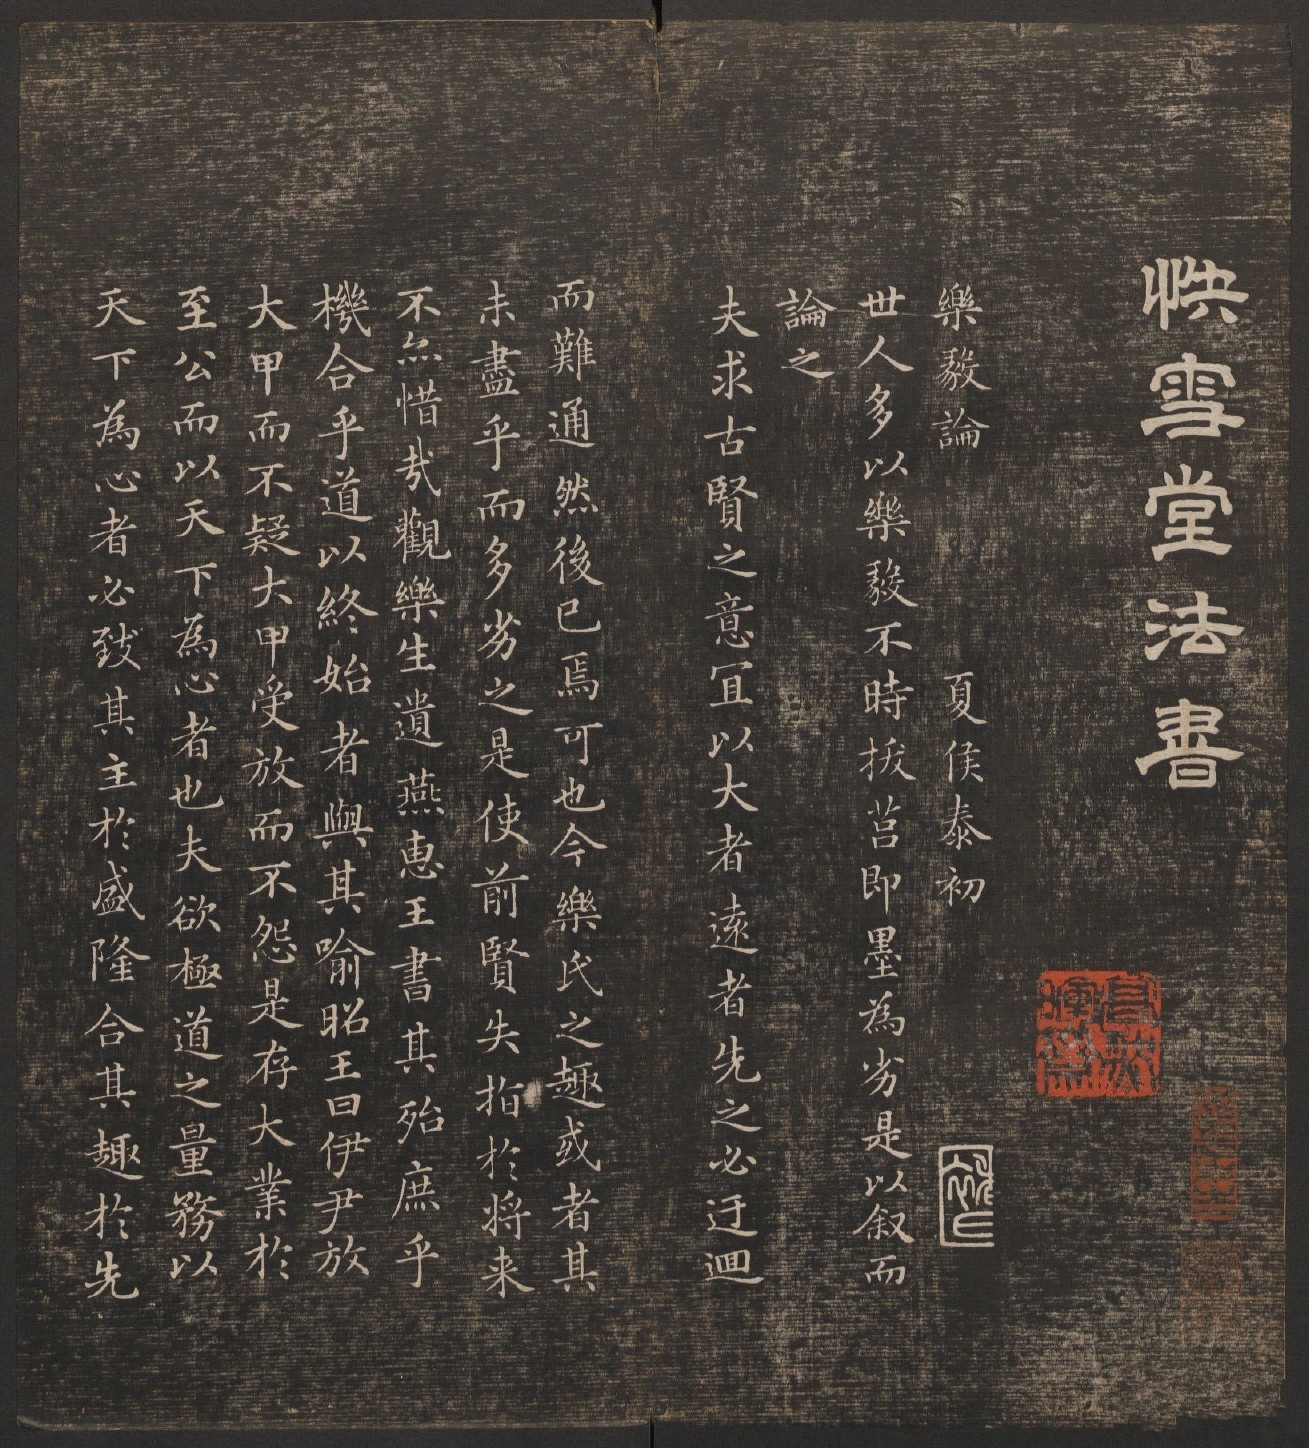 快雪堂法書
樂毅論 夏侯泰初
世人多以樂毅不時拔莒即墨為劣是以叙而
論之
夫求古賢之意宜以大者遠者先之必迂迴
而難通然後已焉可也今樂氏之趣或者其
未盡乎而多劣之是使前賢失指於將来
不亦惜哉觀樂生遺燕惠王書其殆庶乎
機合乎道以終始者與其喻昭王曰伊尹放
大甲而不疑大甲受放而不怨是存大業於
至公而以天下為心者也夫欲極道之量務以
天下為心者必致其主於盛隆合其趣於先